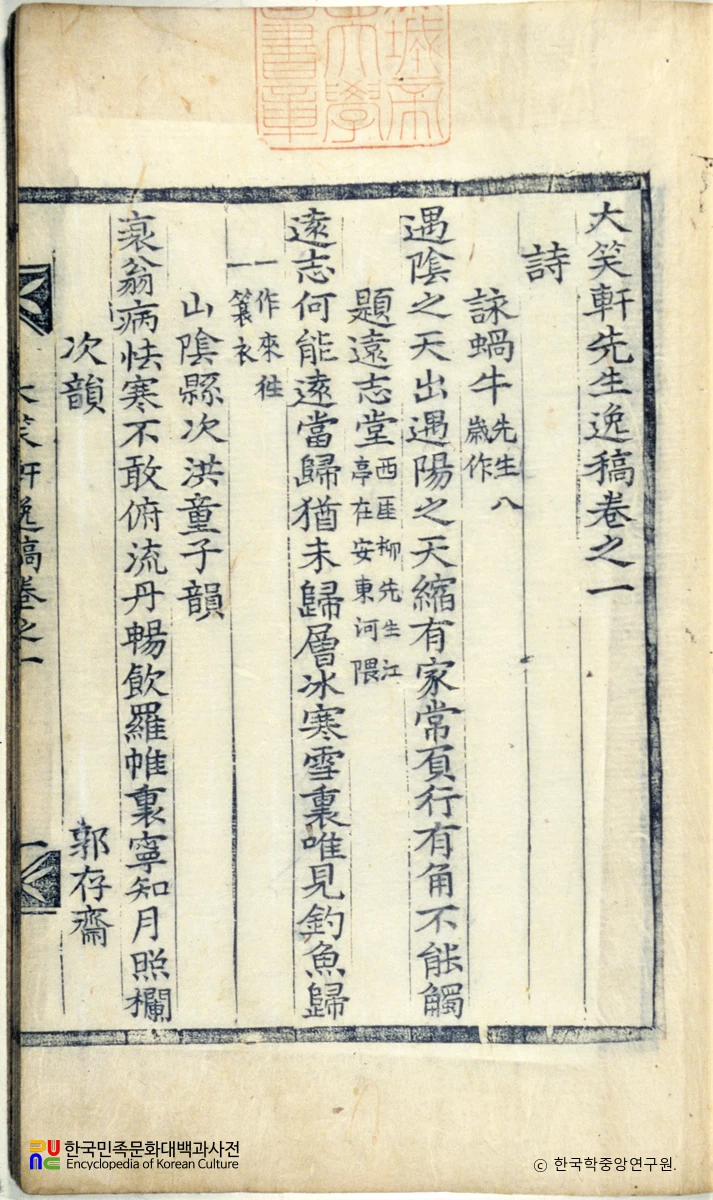 城帝
大學
書章
大笑軒先生逸稿卷之一
詩
詠蝸牛 先生八
歲作
遇陰之天出遇陽之天縮有家常負行有角不能觸
題遠志堂 西厓柳先生江
亭在安東河隈
遠志何能遠當歸猶未歸層冰寒雪裏唯見釣魚歸
一作來往
一簑衣
山陰縣次洪童子韻
衰翁病怯寒不敢俯流丹暢飮羅帷裏寧知月照欄
次韻 郭存齋
大笑軒逸稿卷之一 一
한국민족문화대백과사전
Encyclopedia of Korean Culture
ⓒ 한국학중앙연구원.